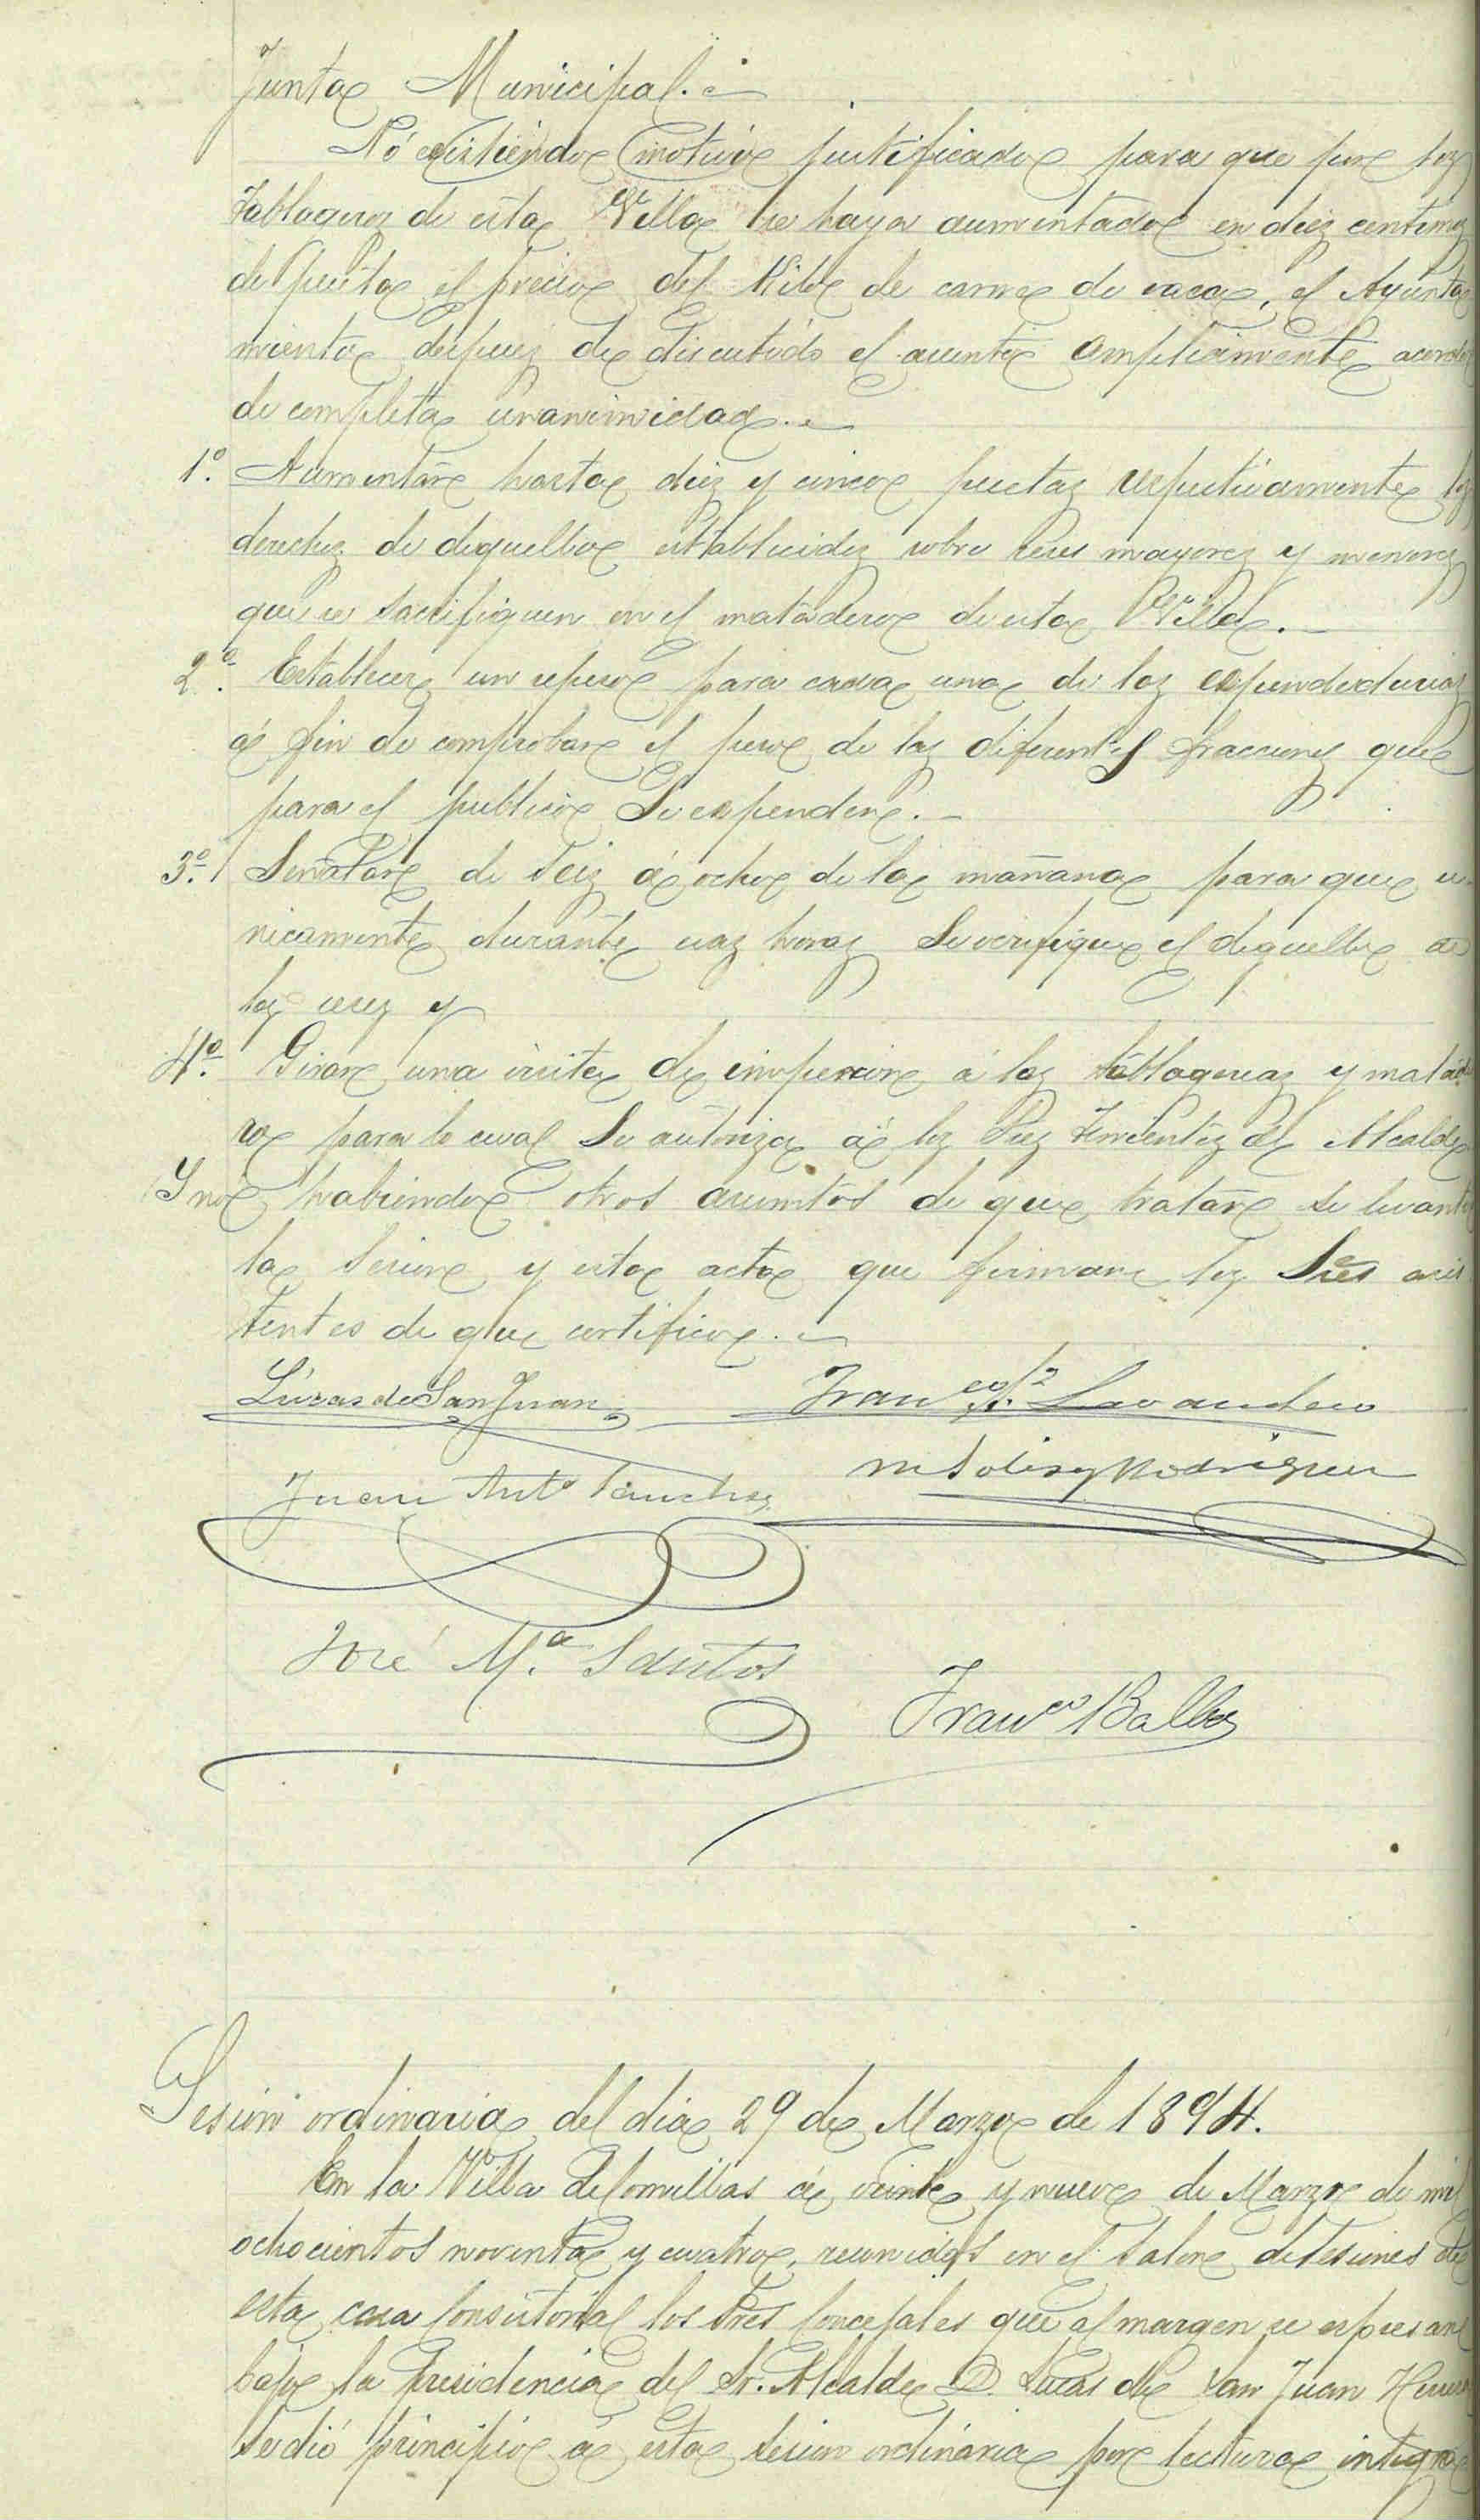 Junta Municipal.
No existiendo motivo justificado para que por los
tablageros de esta Villa se haya aumentado en diez centimos
de peseta el precio del Kilo de carne de vaca, el Ayunta
miento despues de discutido el asunto ampliamente acordó
de completa unanimidad.
1º. Aumentar hasta diez y cinco pesetas respectivamente los
derechos de deguello establecidos sobre reses mayores y menores
que se sacrifiquen en el matadero de esta Villa.
2º. Establecer un repeso para cada una de las expendedurias
á fin de comprobar el peso de las diferentes fracciones que
para el publico se expenden.
3º. Señalar de seis á ocho de la mañana para que u
nicamente durante esas horas se verifique el deguello de
las reses y
4º. Girar una visita de inspeccion á las tablagerias y matade
ro para lo cual se autoriza á los Sres Tenientes de Alcalde
Y no habiendo otros asuntos de que tratar se levantó
la sesion y esta acta que firman los Sres asis
tentes de que certifico.
Lucas de San Juan Franco P. Lavandero
Juan Anto Sanchez M Solis y Rodriguez
José Mª. Santos
Franco Balbas
Sesion ordinaria del dia 29 de Marzo de 1894.
En la Villa de Comillas á veinte y nueve de Marzo de mil
ochocientos noventa y cuatro, reunidos en el Salon de Sesiones de
esta casa Consistorial los Sres Concejales que al margen se espresan
bajo la Presidencia del Sr. Alcalde D. Lucas de San Juan Herrero
se dió principio á esta sesion ordinaria por lectura integra